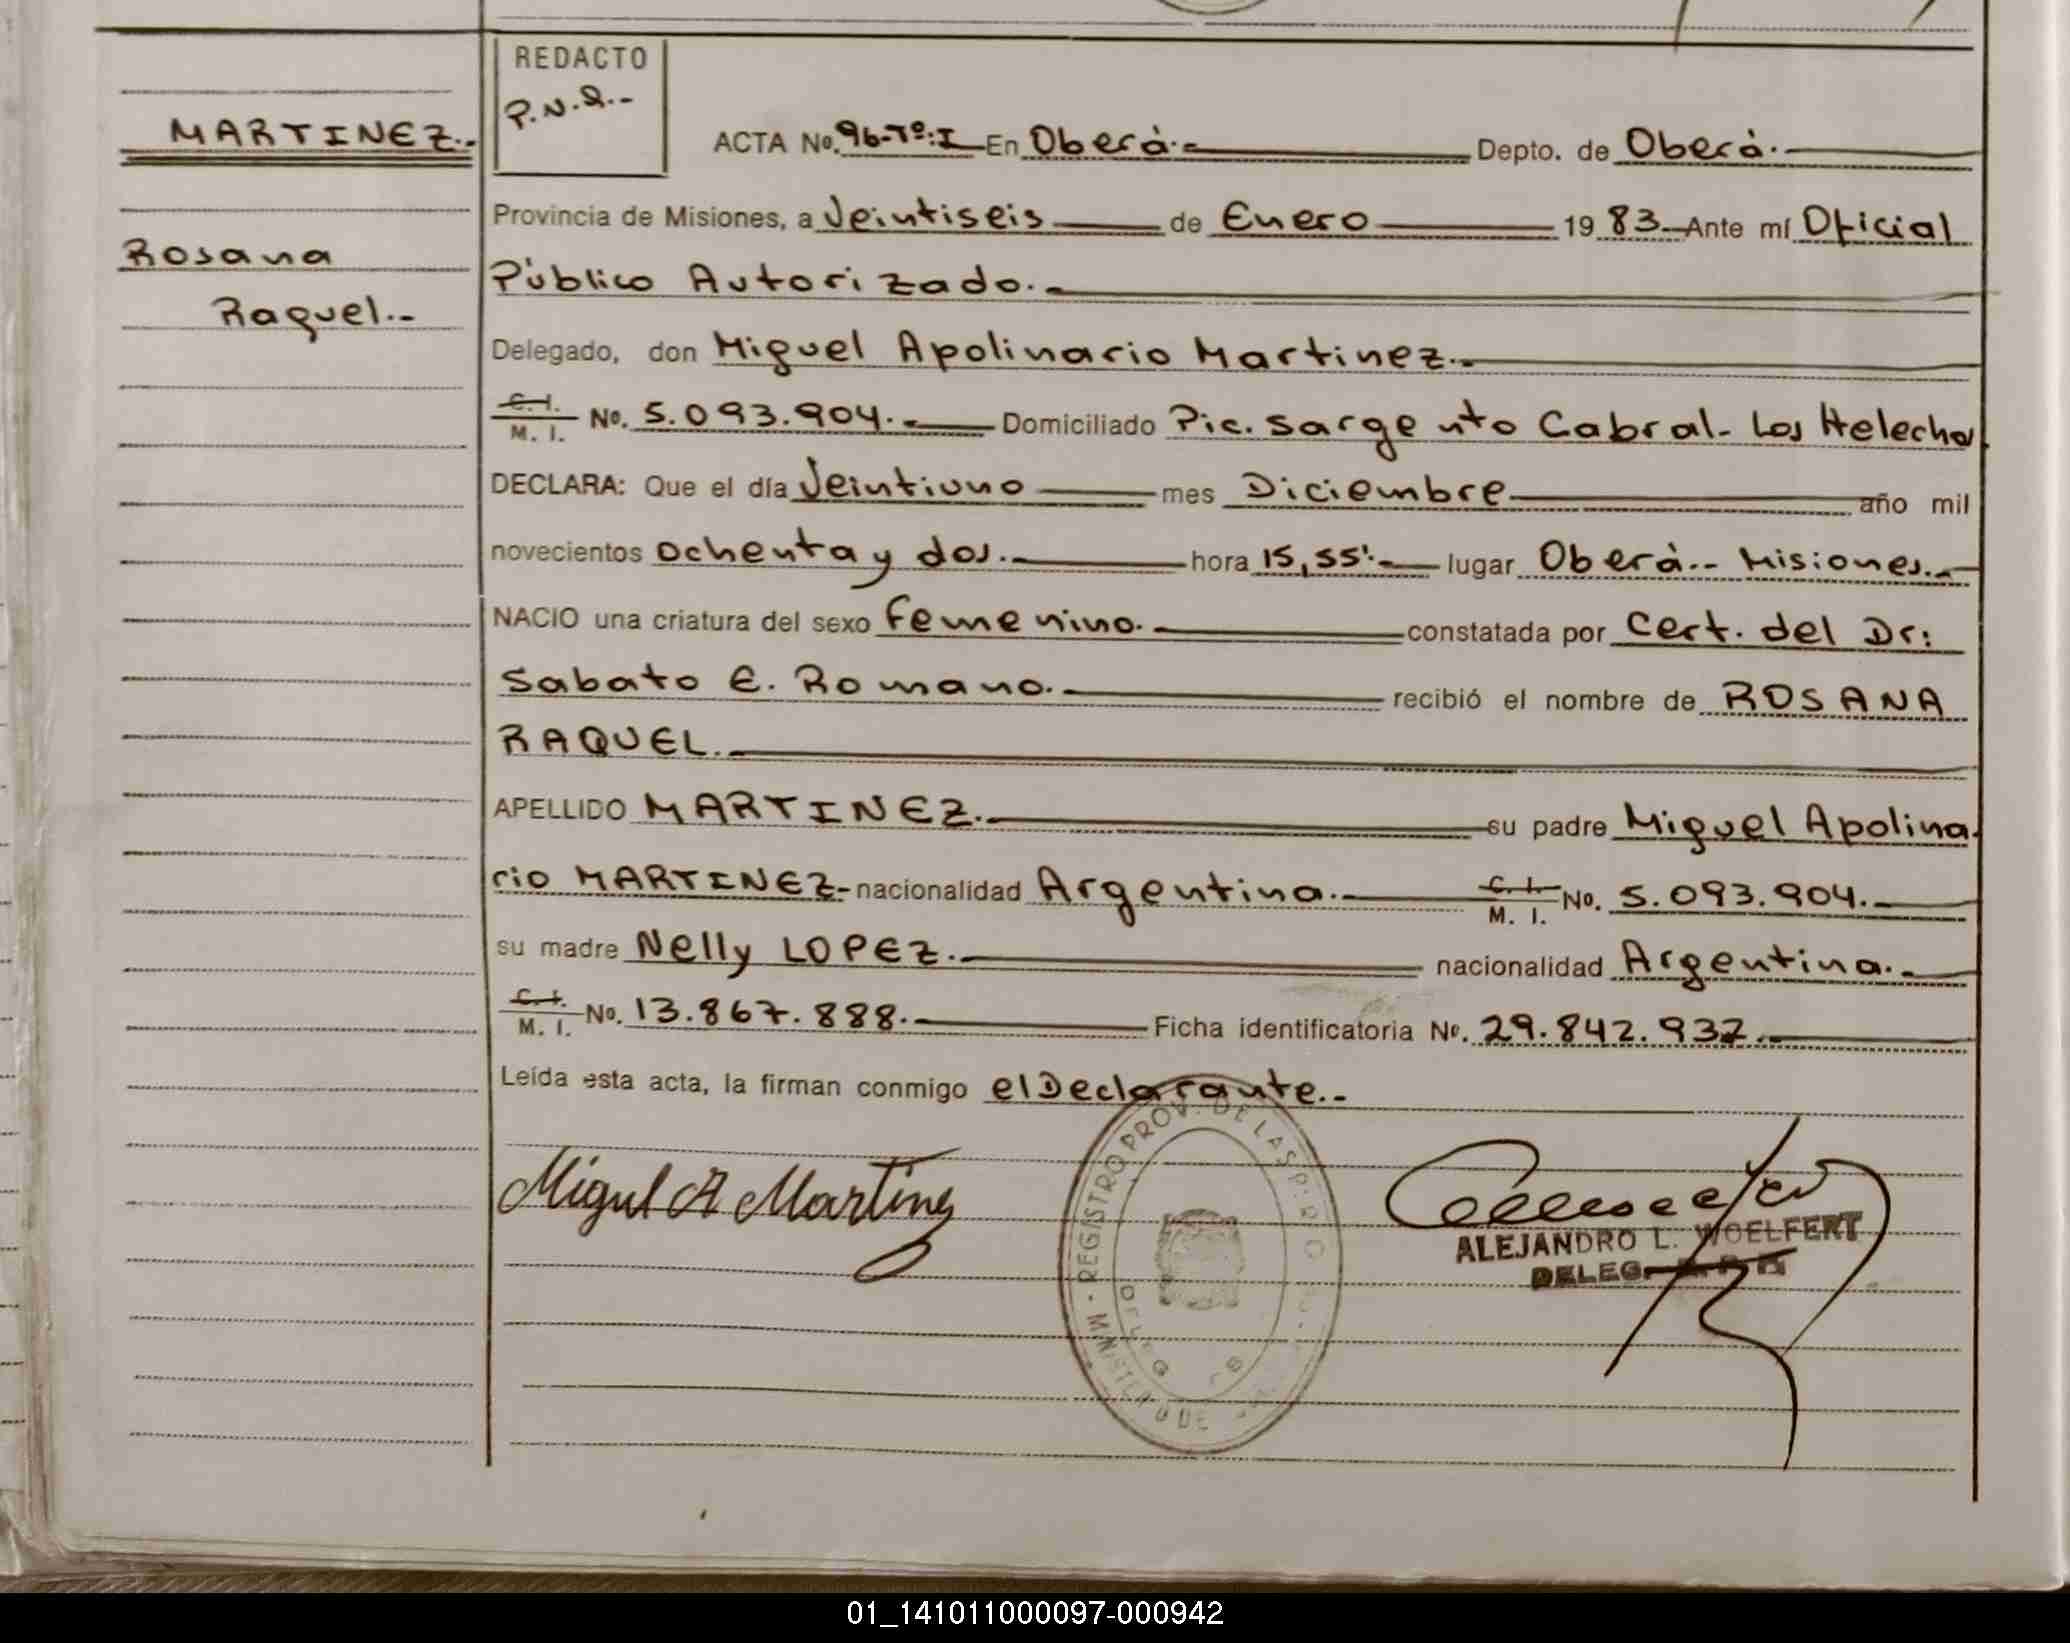 MARTINEZ.-
Rosana
Raquel.-
REDACTO
P.N.R.-
ACTA No. 96-Tº:I En Oberá.- Depto. de Oberá.
Provincia de Misiones, a Veintiseis de Enero 19 83 Ante mí Oficial
Público Autorizado.-
Delegado, don Miguel Apolinario Martinez.-
C. I. / M. I. No. 5.093.904.- Domiciliado Pic. Sargento Cabral- Los Helechos
DECLARA: Que el día Veintiuno mes Diciembre año mil
novecientos ochenta y dos.- hora 15,55'.- lugar Oberá.- Misiones.-
NACIO una criatura del sexo femenino.- constatada por Cert. del Dr:
Sabato E. Romano.- recibió el nombre de ROSANA
RAQUEL.-
APELLIDO MARTINEZ.- su padre Miguel Apolina-
rio MARTINEZ- nacionalidad Argentina.- C. I. / M. I. No. 5.093.904.-
su madre Nelly LOPEZ.- nacionalidad Argentina.-
C. I. / M. I. No. 13.867.888.- Ficha identificatoria No. 29.842.937.-
Leída esta acta, la firman conmigo el Declarante.-
Miguel A Martinez
REGISTRO PROV. DE LAS P.
ALEJANDRO L. WOELFERT
DELEG.
01_141011000097-000942